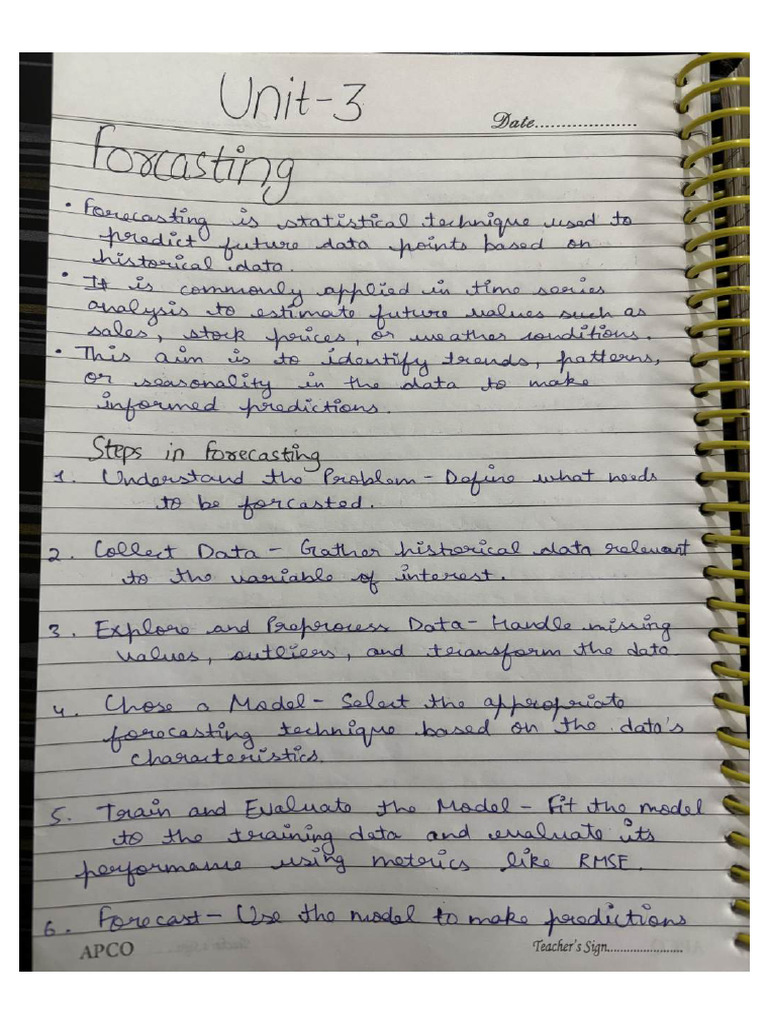 Unit-3
Date...................
Forcasting
• Forecasting is statistical technique used to
predict future data points based on
historical data.
• It is commonly applied in time series
analysis to estimate future values such as
sales, stock prices, or weather conditions.
• This aim is to identify trends, patterns,
or seasonality in the data to make
informed predictions.
Steps in Forecasting
1. Understand the Problem - Define what needs
to be forcasted.
2. Collect Data - Gather historical data relevant
to the variable of interest.
3. Explore and Preprocess Data - Handle missing
values, outliers, and transform the data
4. Chose a Model - Select the appropriate
forecasting technique based on the data's
characteristics.
5. Train and Evaluate the Model - Fit the model
to the training data and evaluate its
performance using metrics like RMSE.
6. Forecast - Use the model to make predictions
APCO
Teacher's Sign.......................